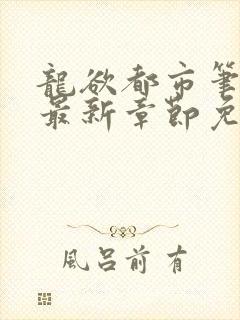 龍欲都市筆
最新章節免
風呂前有